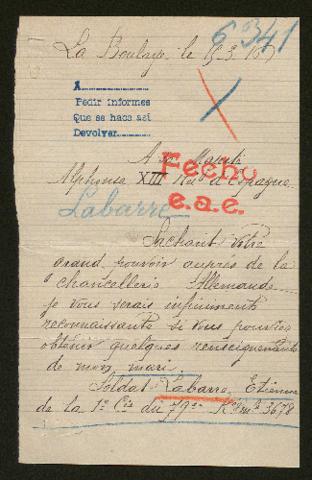 6341
La Boulaye, le 15. 3. 16
A
Pedir informes
Que se haca asi
Devolver
A sa Majesté
Fecho
Alphonse XIII Roi d'Espagne
Labarre
e.a.e.
Sachant votre
grand pouvoir auprès de la
chancellerie Allemande
je vous serais infiniment
reconnaissante si vous pourriez
obtenir quelques renseignements
de mon mari.
Soldat Labarre, Etienne
de la 1e Cie du 79e Reg mle 3678